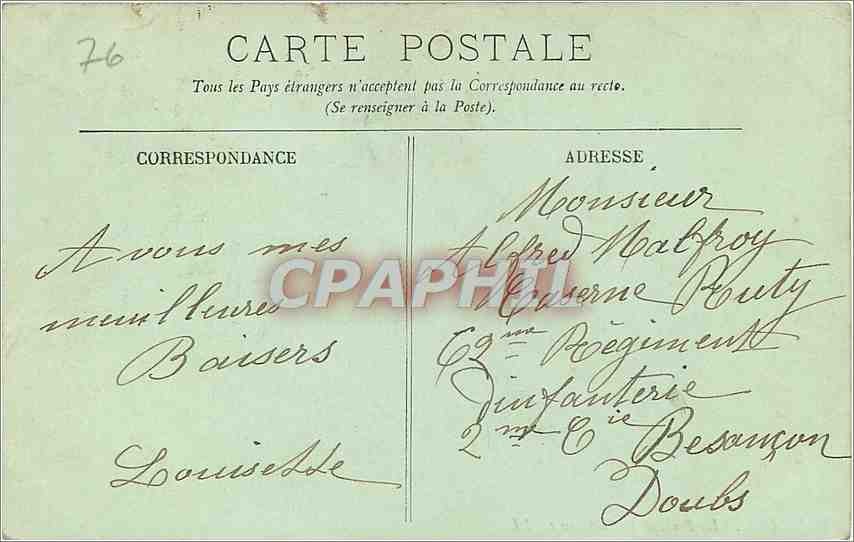 76
CARTE POSTALE
Tous les Pays étrangers n'acceptent pas la Correspondance au recto.
(Se renseigner à la Poste).
CORRESPONDANCE
A vous mes
meuilleures
Baisers
Louisette
ADRESSE
Monsieur
Alfred Malfroy
Caserne Ruty
Régiment
dinfanterie
2me Cie Besançon
Doubs
CPAPHIL